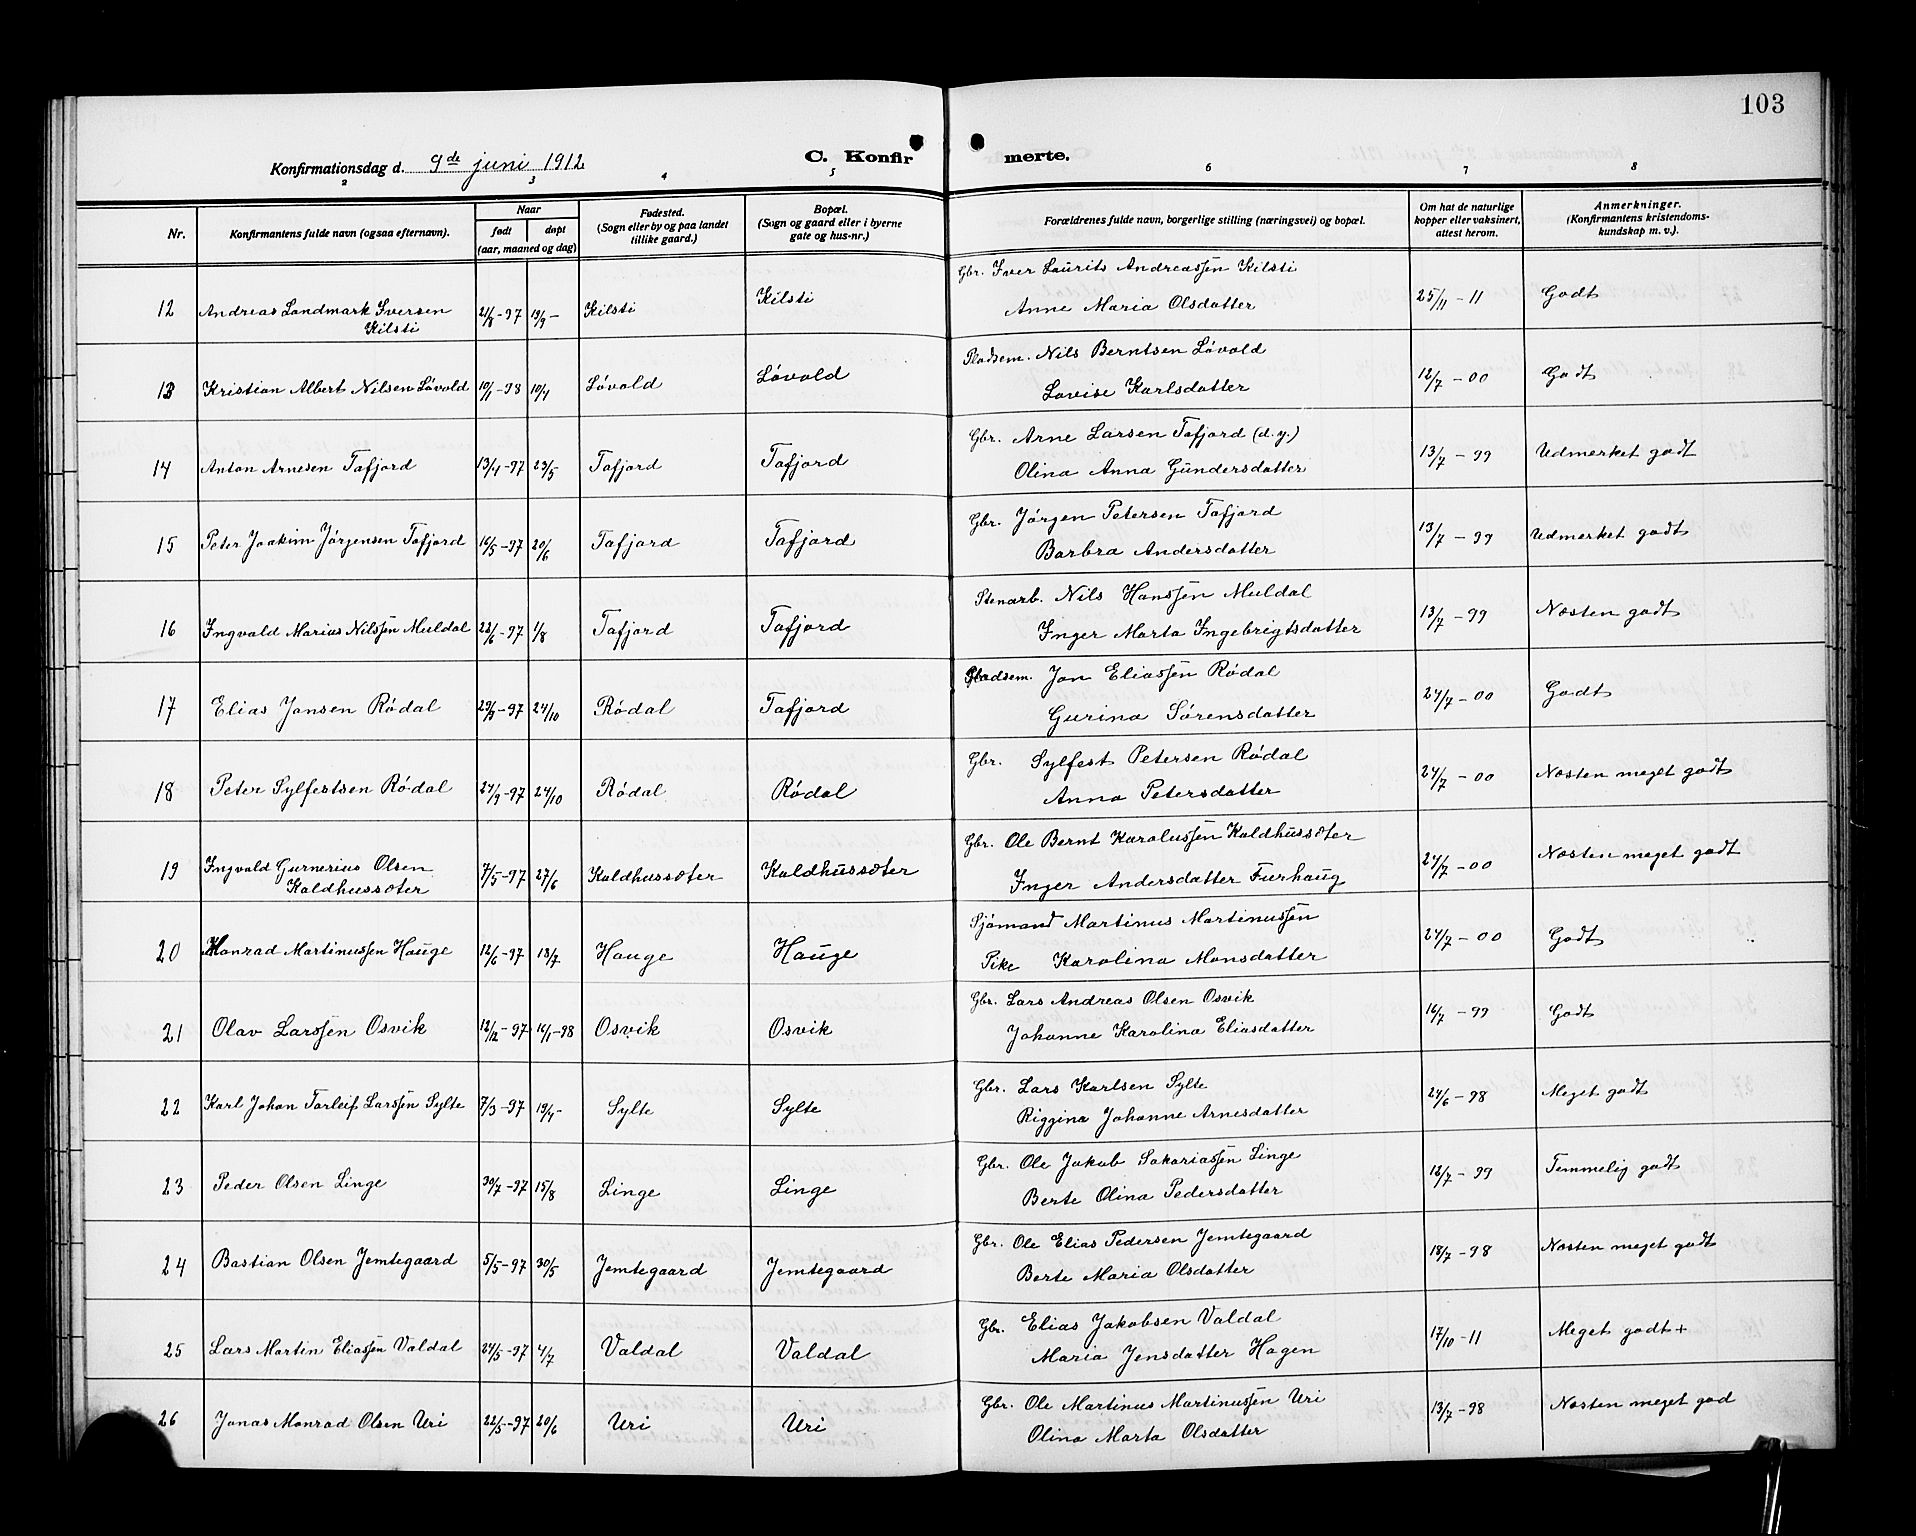 103
Konfirmationsdag d. 9de juni 1912
C. Konfirmerte.
2 3 4 5 6 7 8
Nr.
Konfirmantens fulde navn (ogsaa efternavn).
Naar
født
døpt
(aar, maaned og dag)
Fødested.
(Sogn eller by og paa landet
tillike gaard.)
Bopæl.
(Sogn og gaard eller i byerne
gate og hus-nr.)
Forældrenes fulde navn, borgerlige stilling (næringsvei) og bopæl.
Om hat de naturlige
kopper eller vaksinert,
attest herom.
Anmerkninger.
(Konfirmantens kristendoms-
kundskap m. v.).
Gbr. Iver Laurits Andreassen Kilsti
12 Andreas Landmark Iversen 21/8-97 19/9- Kilsti Kilsti Anne Maria Olsdatter 25/11-11 Godt
Kilsti
Pladsem. Nils Berntsen Løvold
13 Kristian Albert Nilsen Løvold 10/1-98 10/4 Løvold Løvold Lovise Karlsdatter 12/7-00 Godt
Gbr. Arne Larsen Tafjord (d.y.)
14 Anton Arnesen Tafjord 13/4-97 23/5 Tafjord Tafjord Olina Anna Gundersdatter 13/7-99 Udmerket godt
Gbr. Jørgen Petersen Tafjord
15 Peter Joakim Jørgensen Tafjord 16/5-97 20/6 Tafjord Tafjord Barbra Andersdatter 13/7-99 Udmerket godt
Stenarb. Nils Hanssen Muldal
16 Ingvald Marius Nilssen Muldal 22/6-97 1/8 Tafjord Tafjord Inger Marta Ingebrigtsdatter 13/7-99 Næsten godt
Pladsem. Jon Eliassen Rødal
17 Elias Jonsen Rødal 29/9-97 24/10 Rødal Tafjord Gurina Sørensdatter 24/7-00 Godt
Gbr. Sylfest Petersen Rødal
18 Peter Sylfestsen Rødal 24/9-97 24/10 Rødal Rødal Anna Petersdatter 24/7-00 Næsten meget godt
Gbr. Ole Bernt Karolussen Kaldhussæter
19 Ingvald Gurnerius Olsen 7/5-97 27/6 Kaldhussæter Kaldhussæter Inger Andersdatter Furhaug 24/7-00 Næsten meget godt
Kaldhussæter
Sjømand Martinus Martinussen
20 Konrad Martinussen Hauge 12/6-97 18/7 Hauge Hauge Pike Karolina Monsdatter 24/7-00 Godt
Gbr. Lars Andreas Olsen Osvik
21 Olav Larssen Osvik 12/12-97 16/1-98 Osvik Osvik Johanne Karolina Eliasdatter 16/7-99 Godt
Gbr. Lars Karlsen Sylte
22 Karl Johan Torleif Larssen Sylte 7/3-97 19/4- Sylte Sylte Riggina Johanne Arnesdatter 24/6-98 Meget godt
Gbr. Ole Jakob Sakariassen Linge
23 Peder Olsen Linge 30/7-97 15/8 Linge Linge Berte Olina Pedersdatter 12/7-99 Temmelig godt
Gbr. Ole Elias Pedersen Jemtegaard
24 Bastian Olsen Jemtegaard 5/5-97 30/5 Jemtegaard Jemtegaard Berte Maria Olsdatter 18/7-98 Næsten meget godt
Gbr. Elias Jakobsen Valdal
25 Lars Martin Eliassen Valdal 24/5-97 4/7 Valdal Valdal Maria Jensdatter Hagen 17/10-11 Meget godt+
Gbr. Ole Martinus Martinussen Uri
26 Jonas Monrad Olsen Uri 22/5-97 20/6 Uri Uri Olina Marta Olsdatter 13/7-98 Næsten meget god